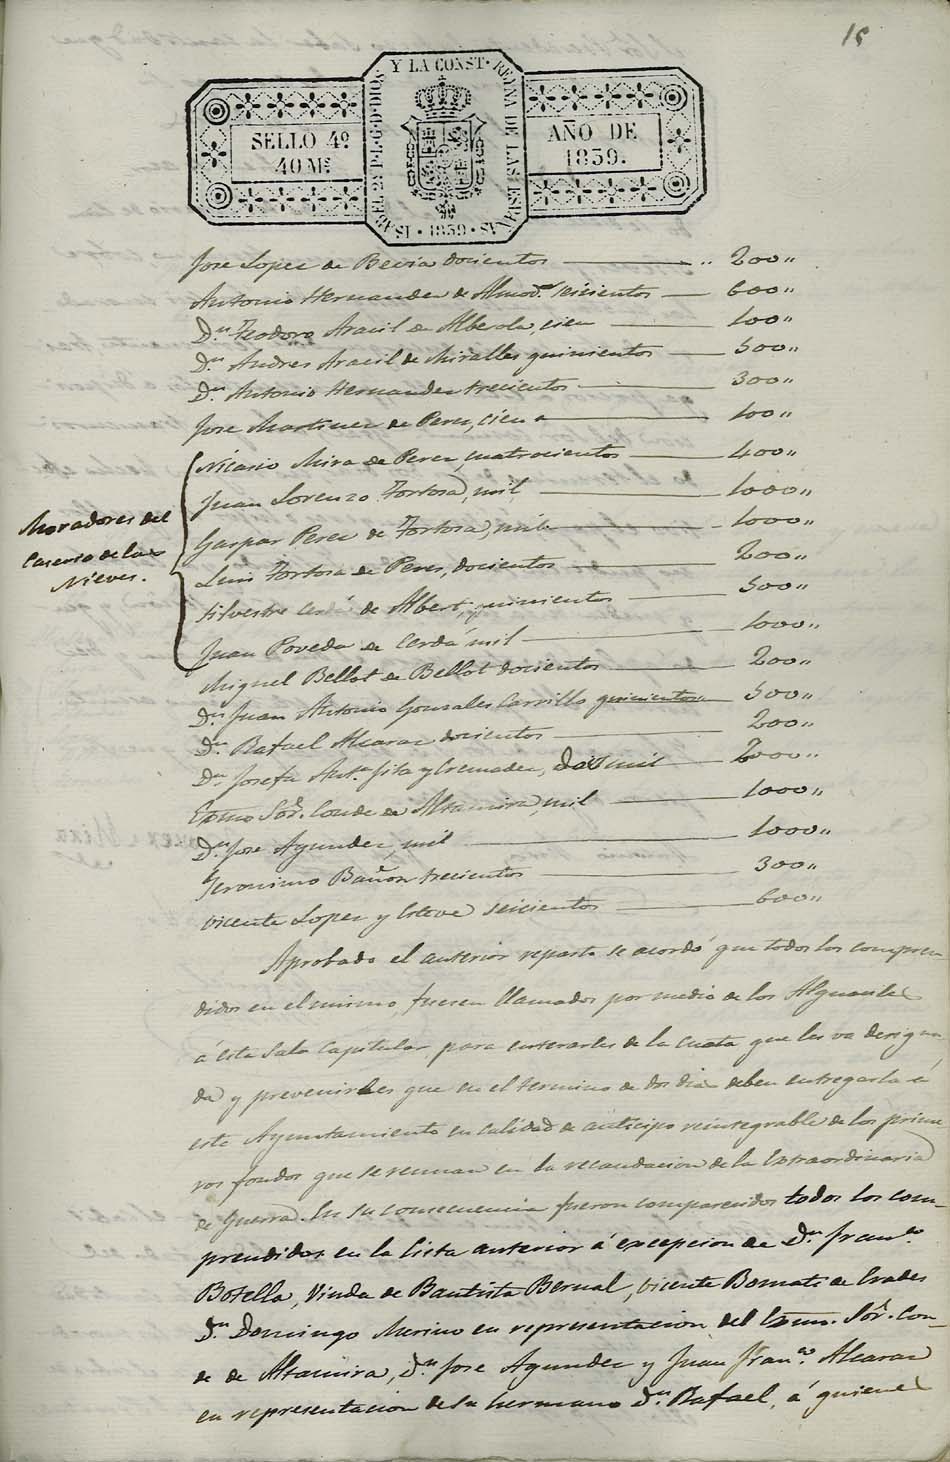 15
Y LA CONST. REYNA DE LAS ESPAÑAS · 1839 · ISABEL 2ª P. L. G. D. DIOS
SELLO 4º
40 Ms
AÑO DE
1839.
Jose Lopez de Bevia docientos 200"
Antonio Hernandez de Almod.r seicientos 600"
D.n Teodoro Aracil de Alberola, cien 100"
D.n Andres Aracil de Miralles quinientos 500"
D.n Antonio Hernandez trecientos 300"
Jose Martinez de Perez, cien 100"
Moradores del
Caserio de las
Nieves.
Nicasio Mira de Perez, cuatrocientos 400"
Juan Lorenzo Tortosa, mil 1000"
Gaspar Perez de Tortosa, mil 1000"
Luis Tortosa de Perez, docientos 200"
Silvestre Cerdá de Albert, quinientos 500"
Juan Poveda de Cerdá mil 1000"
Miguel Bellot de Bellot docientos 200"
D.n Juan Antonio Gonzales Carrillo quinientos 500"
D.n Rafael Alcaraz docientos 200"
D.a Josefa Ant.a Sila y Cremades, dos mil 2000"
Exmo Sor. Conde de Altamira, mil 1000"
D.n Jose Agundez, mil 1000"
Jeronimo Bañon trecientos 300"
Vicente Lopez y Esteve seicientos 600"
Aprobado el anterior reparto se acordó que todos los compren-
didos en el mismo, fuesen llamados por medio de los Alguaciles
á esta Sala Capitular para enterarles de la cuota que les va designa-
da y prevenirles que en el termino de dos dias deben entregarla á
este Ayuntamiento en calidad de anticipo reintegrable de los prime-
ros fondos que se reunan en la recaudacion de la Extraordinaria
de Guerra. En su consecuencia fueron comparecidos todos los com-
prendidos en la lista anterior á excepcion de D.n Fran.co
Botella, Viuda de Bautista Bernal, Vicente Bernat de Prades
D.n Domingo Merino en representacion del Exmo. Sór. Con-
de de Altamira, D.n Jose Agundez y Juan Fran.co Alcaraz
en representacion de su hermano D.n Rafael, á quienes